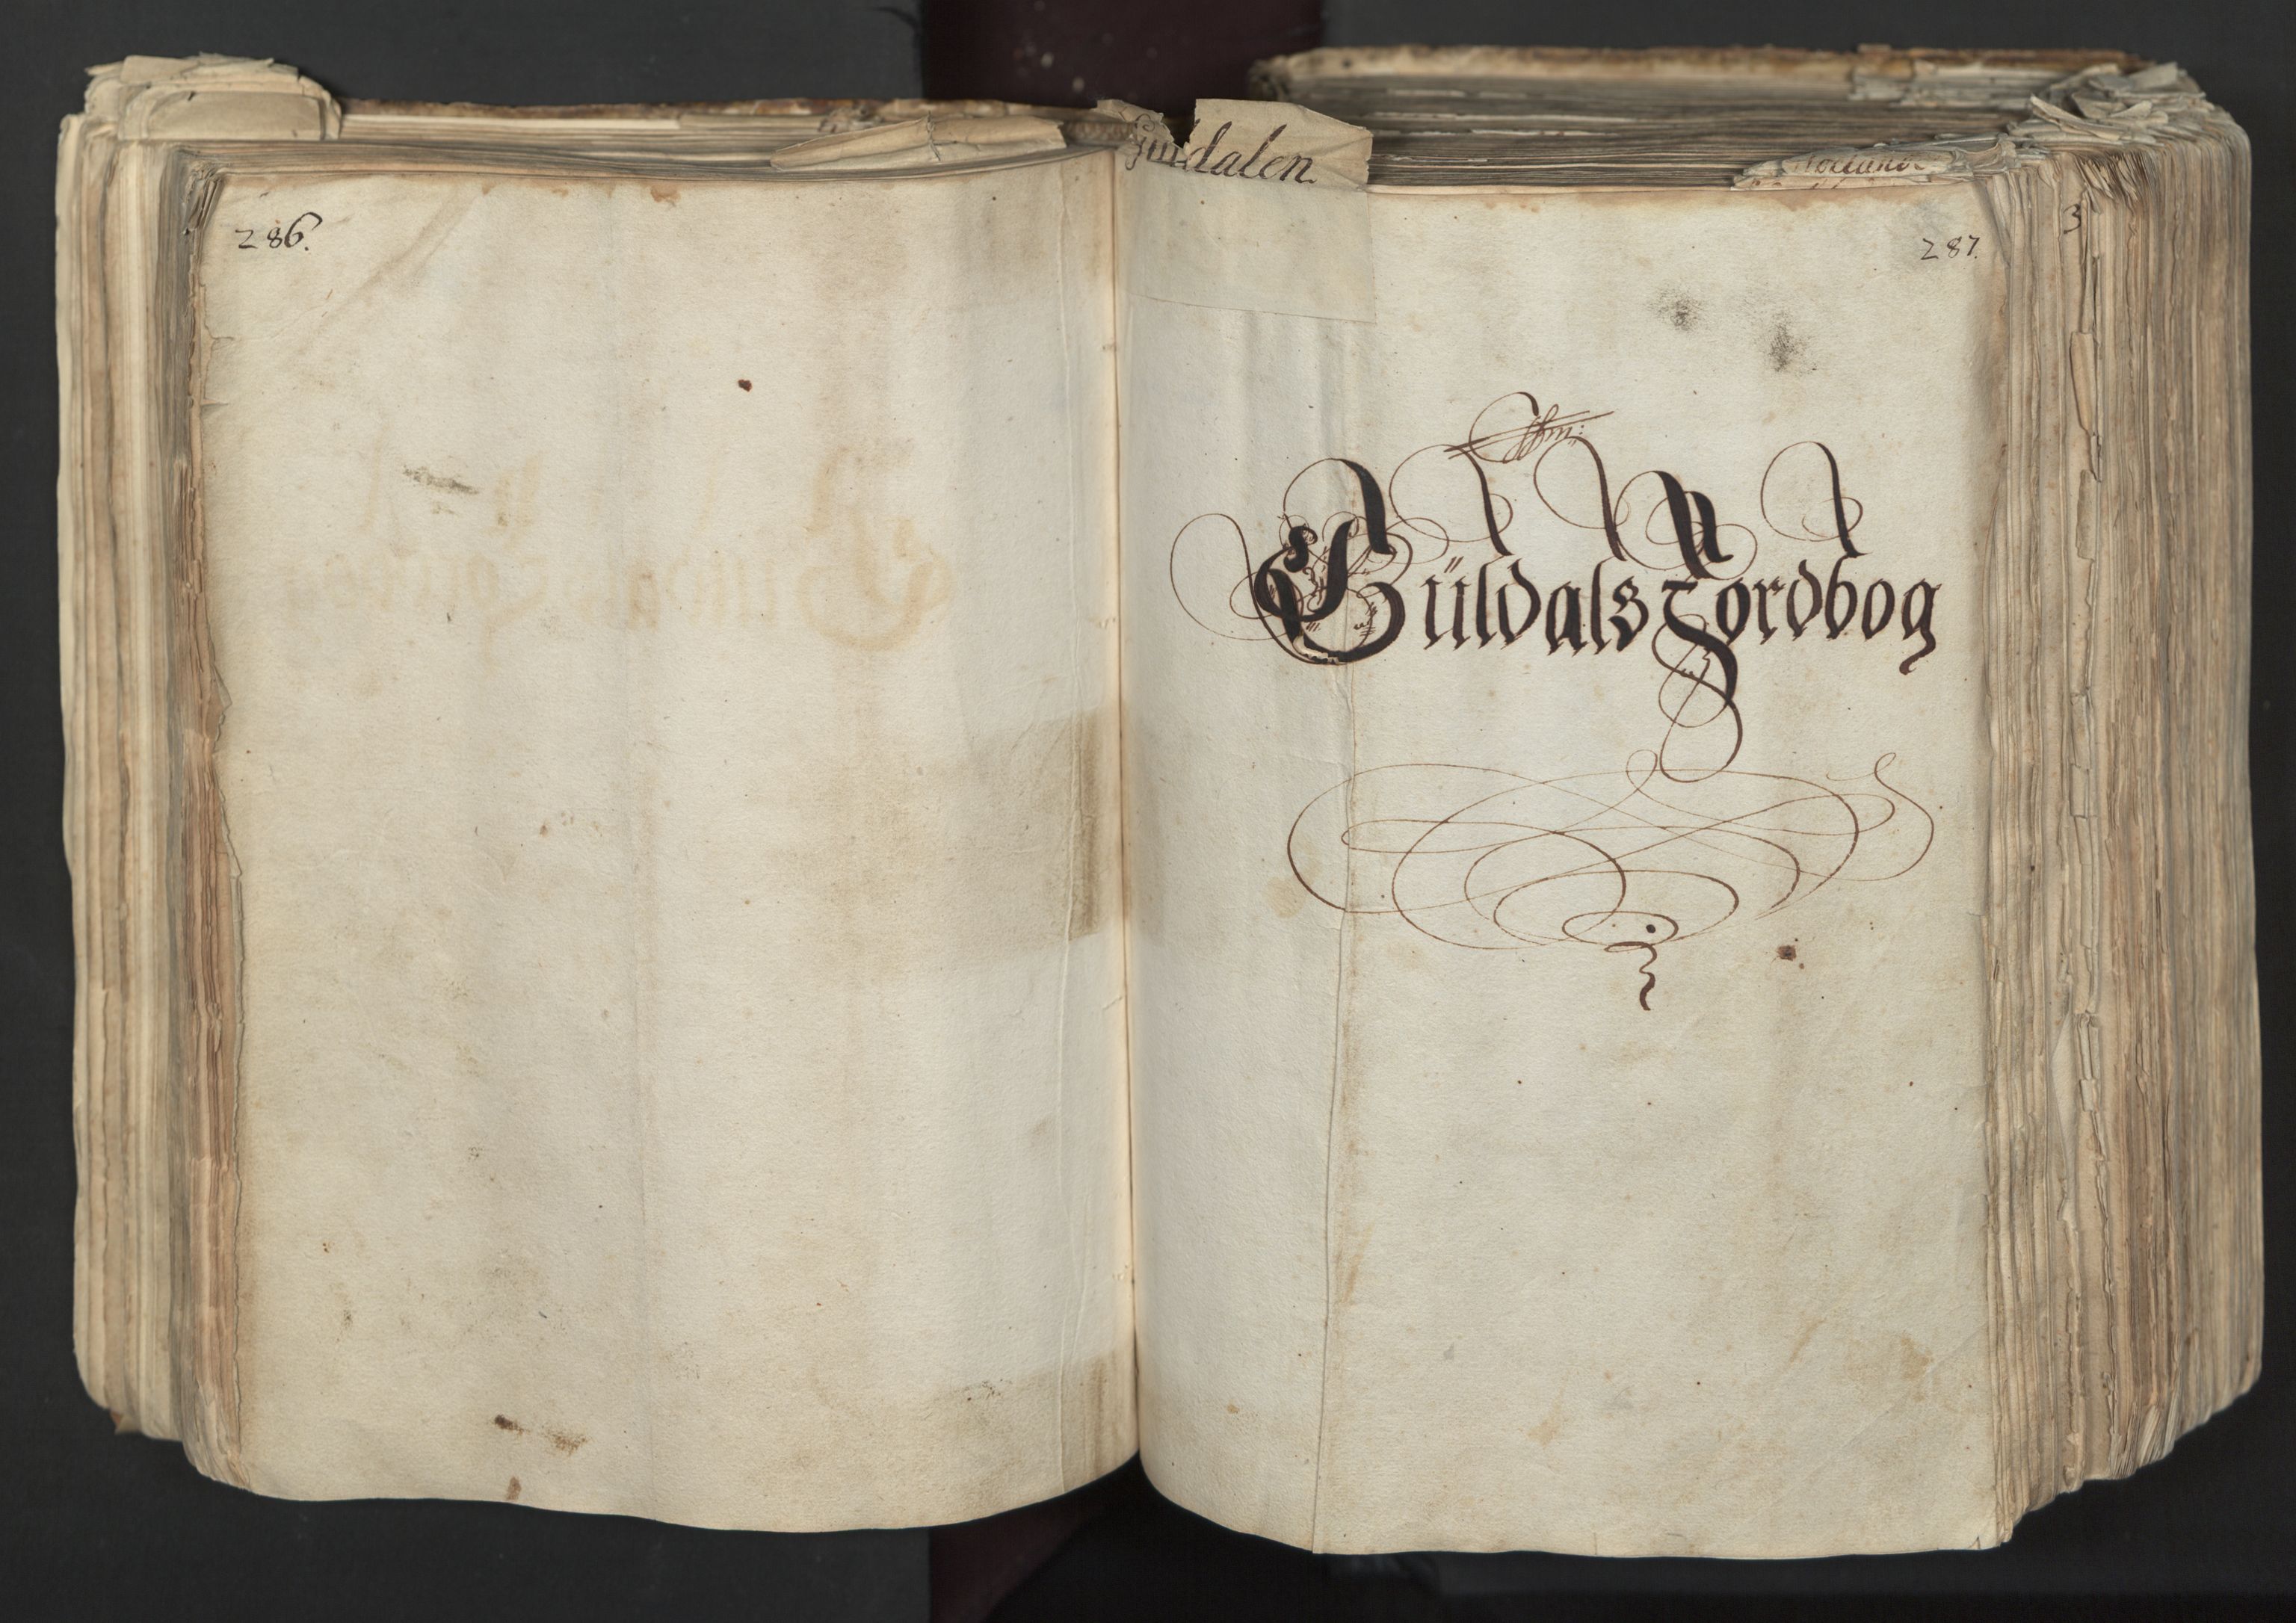 286.
dalen.
287.
3
Güldals Jordbog